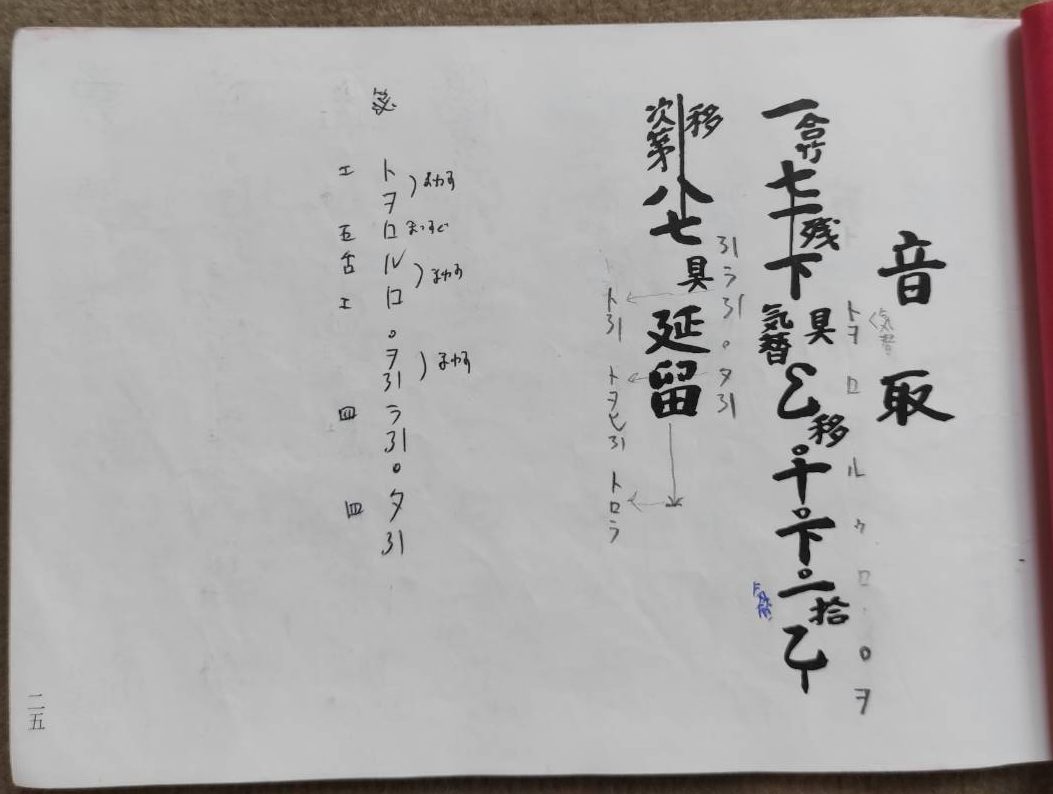 音取
ト ヲ ロ ル ゥ ロ 。 ヲ
気替
一 合竹 七 一 残 下 具 気替 移 千 下 一 拾 乙
引 ラ 引 。 タ 引
移 次第 八 七 具 延 留
ト 引 ト ヲ ヒ 引 ト ロ ラ
ト ヲ ロ ル ロ 。 ヲ 引 ラ 引 。 タ 引
まわす まっすぐ まわす まわす
エ 五 舌 エ 四 四
二五